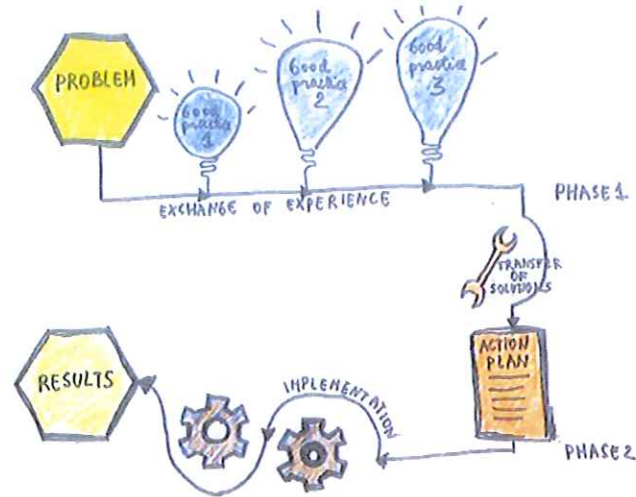 PROBLEM
Good
practice
1
Good
practice
2
Good
practice
3
EXCHANGE OF EXPERIENCE
PHASE 1
TRANSFER
OF
SOLUTIONS
ACTION
PLAN
RESULTS
IMPLEMENTATION
PHASE 2